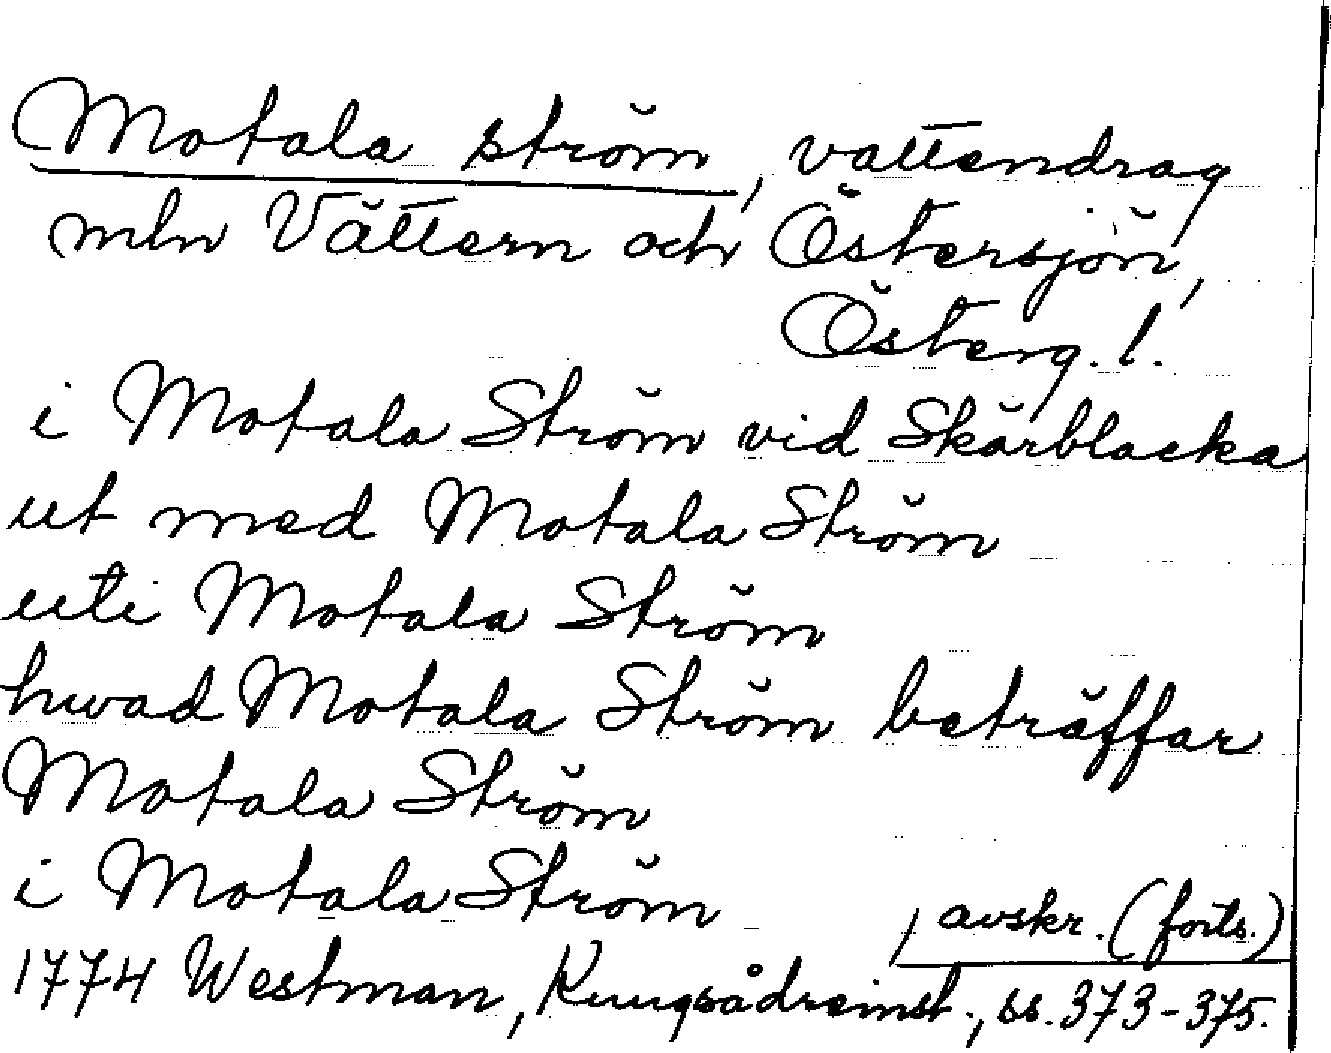 Motala ström, vattendrag
mln Vättern och Östersjön,
Österg. l.
i Motala Ström vid Skärblacka
ut med Motala Ström
uti Motala Ström
hwad Motala Ström beträffar
Motala Ström
i Motala Ström
, avskr. (forts.)
1774 Westman, Kungsådreinst., ss. 373-375.